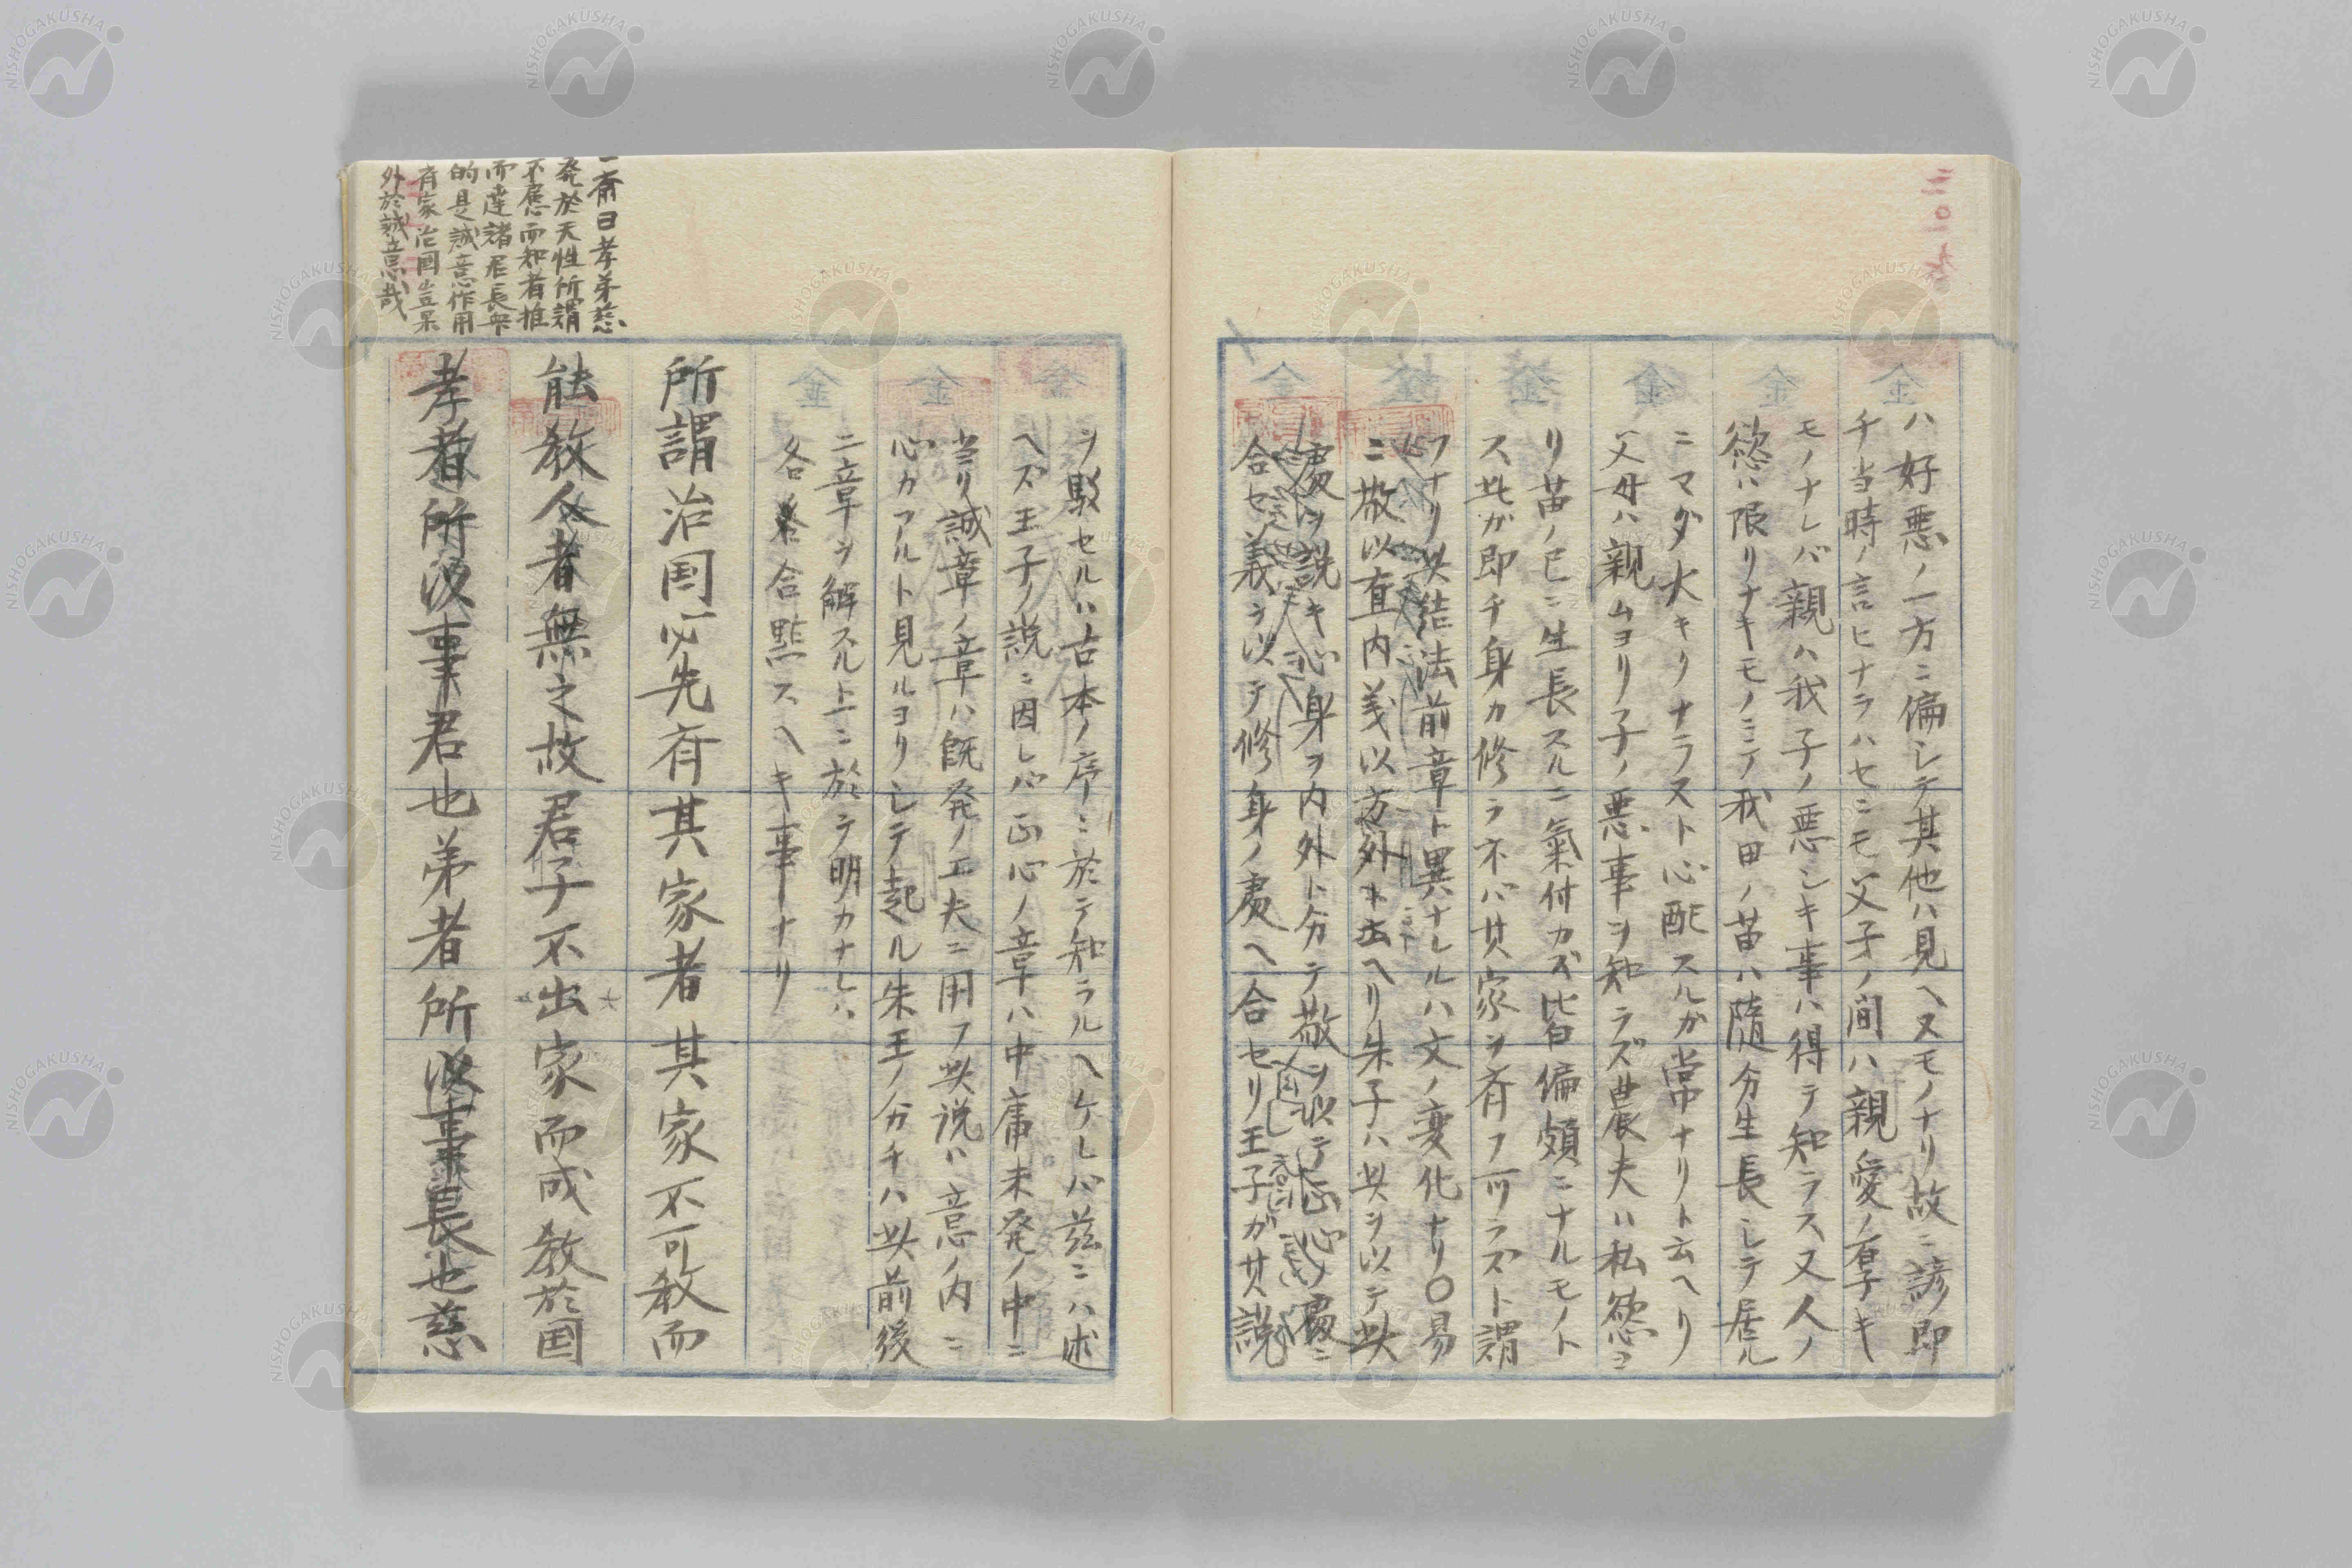 ハ好悪ノ一方ニ偏シテ其他ハ見ヘヌモノナリ故ニ諺即
チ当時ノ言ヒナラハセニモ父子ノ間ハ親愛ノ厚キ
モノナレバ親ハ我子ノ悪シキ事ハ得テ知ラス又人ノ
慾ハ限リナキモノミテ我田ノ苗ハ随分生長シテ居ル
ニマダ大キクナラスト心配スルガ常ナリト云ヘリ
父母ハ親ムヨリ子ノ悪事ヲ知ラズ農夫ハ私慾ヨ
リ苗ノ已ニ生長スルニ氣付カズ皆偏頗ニナルモノト
ス此ガ即チ身カ修ラネバ其家ヲ斉フ可ラズト謂
フナリ此結法前章ト異ナレルハ文ノ変化ナリ〇易
ニ敬以直内義以方外ト云ヘリ朱子ハ此ヲ以テ此
処ヲ説キ心身ヲ内外ト分テ敬ヲ以テ正心ノ処ニ
合セ義ヲ以テ修身ノ処ヘ合セリ王子ガ其説
ヲ駁セルハ古本ノ序ニ於テ知ラルヘケレバ茲ニハ述
ヘズ王子ノ説ニ因レバ正心ノ章ハ中庸未発ノ中ニ
当リ誠章ノ章ハ既発ノ工夫ニ用フ此説ハ意ノ内ニ
心カアルト見ルヨリシテ起ル朱王ノ分チハ此前後
二章ヲ解スル上ニ於テ明カナレハ
各々合點スヘキ事ナリ
所謂治国必先斉其家者其家不可教而
能教人者無之故君子不出家而成教於国
孝者所以事君也弟者所以事長也慈
一斎曰孝弟慈
発於天性所謂
不慮而知者推
而達諸君長衆
的是誠意作用
斉家治国豈果
外於誠意哉
NISHOGAKUSHA